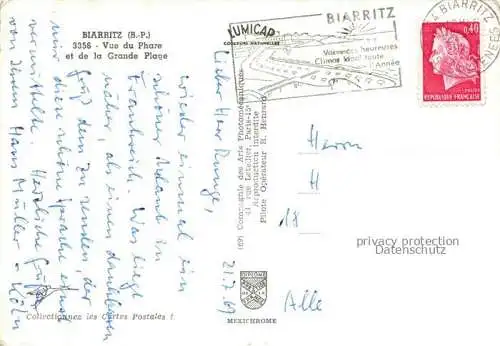 BIARRITZ (B.-P.)
3358 - Vue du Phare
et de la Grande Plage
LUMICAP
COULEURS NATURELLES
BIARRITZ
Vacances heureuses
Climat idéal toute
l'Année
BIARRITZ
0,40
REPUBLIQUE FRANÇAISE
21.7.69
Lieber Herr Runge,
wieder einmal ein
schöner Urlaub in
Frankreich. Was liegt
näher, als einen dankbaren
Gruß dem zu senden, der
mir diese schöne Sprache einst
vermittelte. Herzliche Grüße
von Ihrem Hans Müller
Köln
(69) Compagnie des Arts Photomécaniques
41, rue Letellier, Paris-15e
Reproduction Interdite
Pilote Opérateur R. Henrard
Herrn
H
18
Alle
privacy protection
Datenschutz
Collectionnez les Cartes Postales !
MEXICHROME